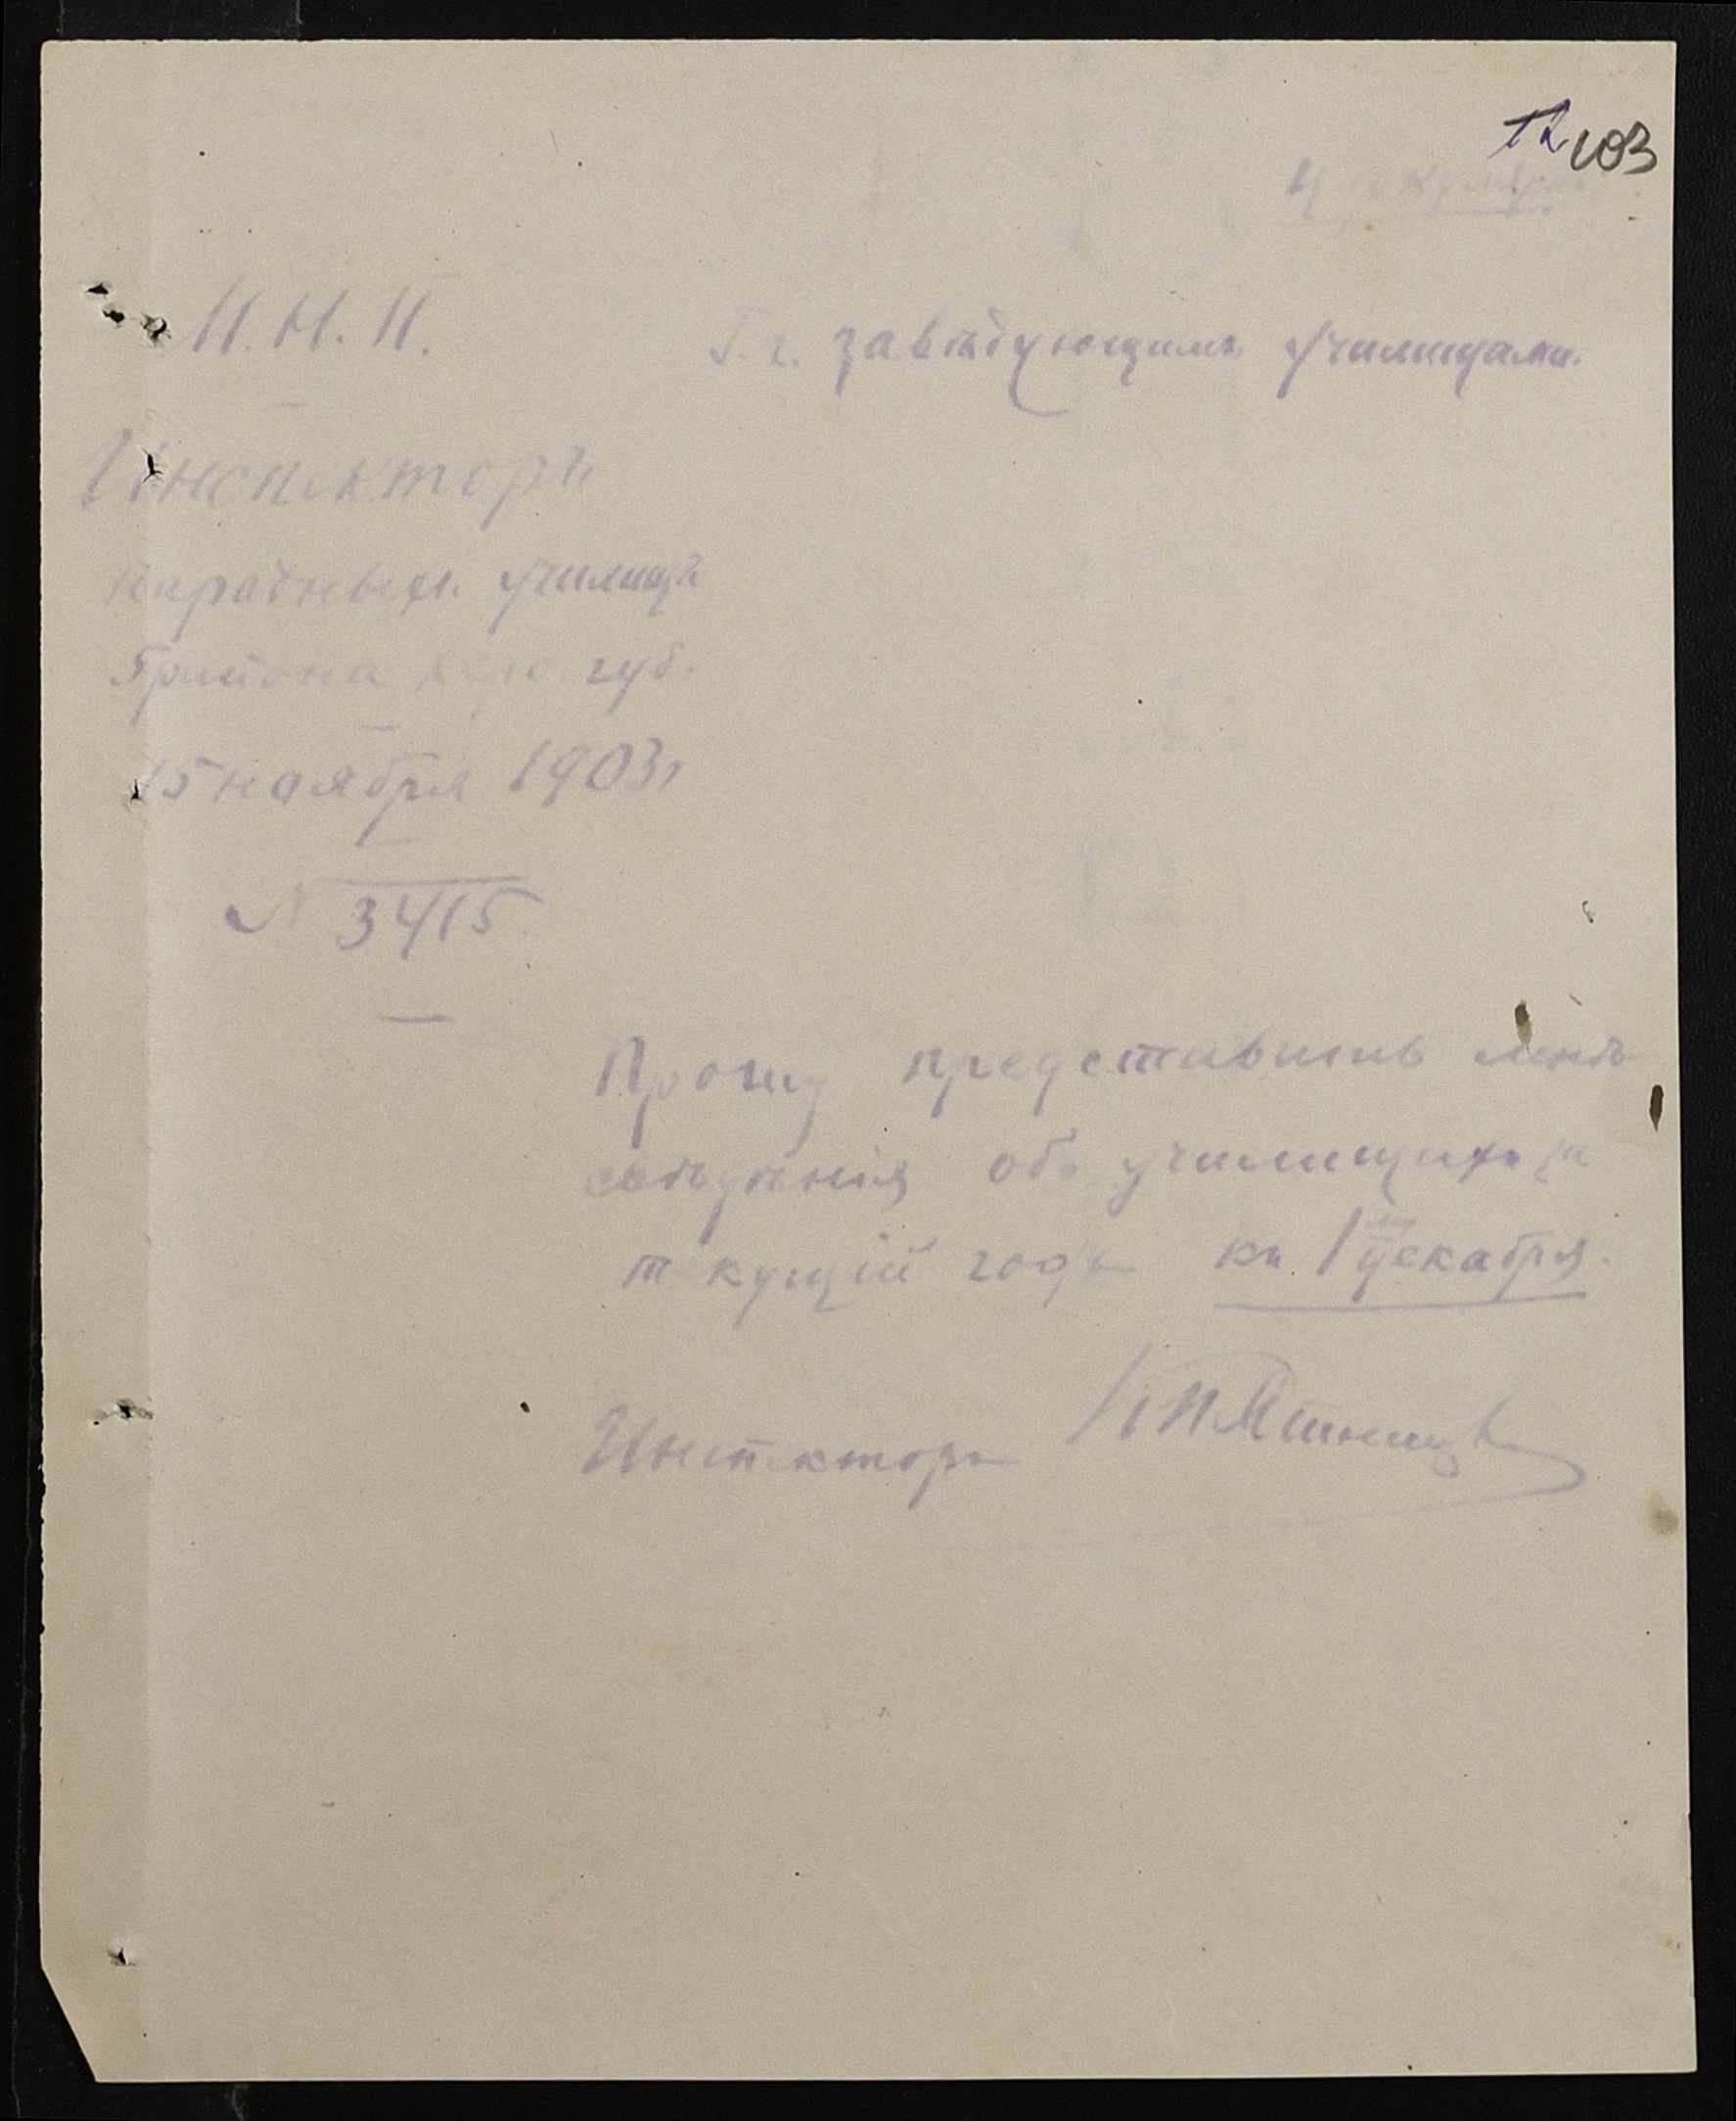 12 103
Циркулярно
М. Н. П.
Г.г. завѣдующимъ училищами.
Инспекторъ
народныхъ училищъ
5 района Хер. губ.
15 ноября 1903 г.
№ 3415
Прошу представить мнѣ
свѣдѣнія объ училищахъ за
текущій годъ къ 1му декабря.
Инспекторъ